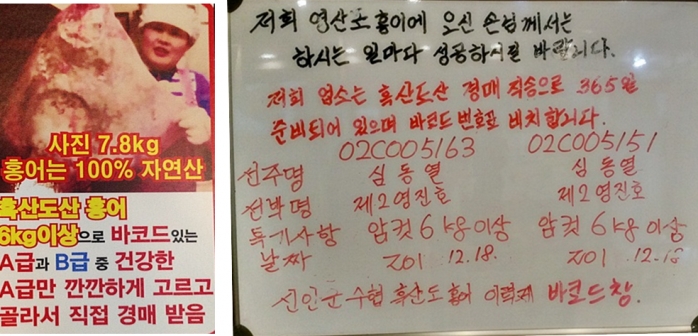 사진 7.8kg
홍어는 100% 자연산
흑산도산 홍어
6kg이상으로 바코드있는
A급과 B급 중 건강한
A급만 깐깐하게 고르고
골라서 직접 경매 받음
저희 영산포 홍어에 오신 손님께서는
하시는 일마다 성공하시길 바랍니다.
저희 업소는 흑산도산 경매 직송으로 365일
준비되어 있으며 바코드 번호판 비치합니다.
02C005163 02C005151
선주명 심동열 심동열
선박명 제2영진호 제2영진호
특기사항 암컷 6kg 이상 암컷 6kg 이상
날짜 201 12.18. 201 12.18
신안군수협 흑산도 홍어 이력제 바코드 창.